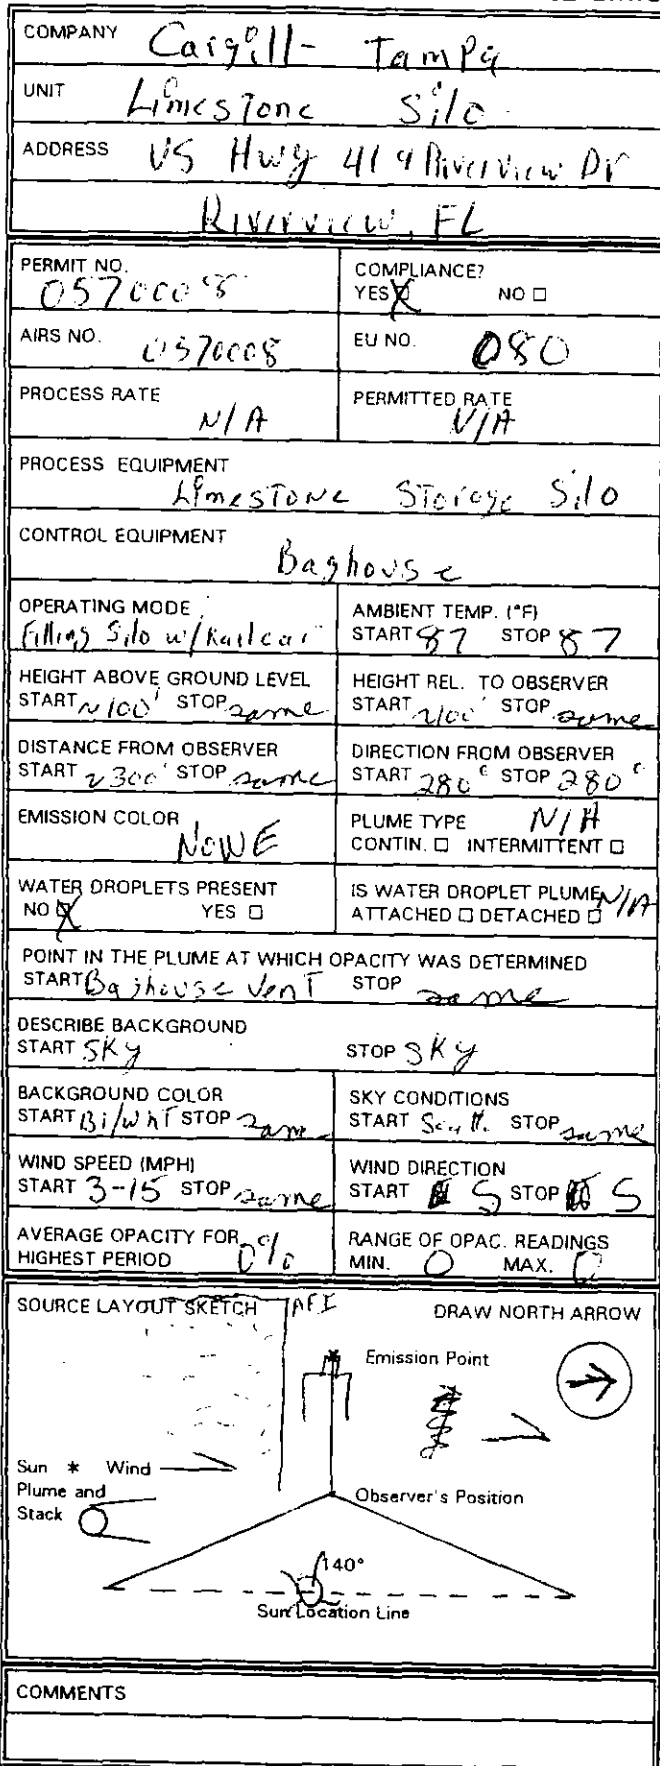 COMPANY Cargill - Tampa
UNIT Limestone Silo
ADDRESS US Hwy 41 & Riverview Dr
Riverview, FL
PERMIT NO. 0570008
COMPLIANCE? YES X NO □
AIRS NO. 0570008
EU NO. 080
PROCESS RATE N/A
PERMITTED RATE N/A
PROCESS EQUIPMENT
Limestone Storage Silo
CONTROL EQUIPMENT
Baghouse
OPERATING MODE
Filling Silo w/Railcar
AMBIENT TEMP. (°F)
START 87 STOP 87
HEIGHT ABOVE GROUND LEVEL
START ~100' STOP same
HEIGHT REL. TO OBSERVER
START ~100' STOP same
DISTANCE FROM OBSERVER
START ~300' STOP same
DIRECTION FROM OBSERVER
START 280° STOP 280°
EMISSION COLOR
NONE
PLUME TYPE N/A
CONTIN. □ INTERMITTENT □
WATER DROPLETS PRESENT
NO X YES □
IS WATER DROPLET PLUME N/A
ATTACHED □ DETACHED □
POINT IN THE PLUME AT WHICH OPACITY WAS DETERMINED
START Baghouse Vent STOP same
DESCRIBE BACKGROUND
START Sky STOP Sky
BACKGROUND COLOR
START Bl/Wht STOP same
SKY CONDITIONS
START Scatt. STOP same
WIND SPEED (MPH)
START 3-15 STOP same
WIND DIRECTION
START S STOP S
AVERAGE OPACITY FOR
HIGHEST PERIOD 0%
RANGE OF OPAC. READINGS
MIN. 0 MAX. 0
SOURCE LAYOUT SKETCH AFI
DRAW NORTH ARROW
Emission Point
Sun * Wind
Plume and
Stack
Observer's Position
140°
Sun Location Line
COMMENTS